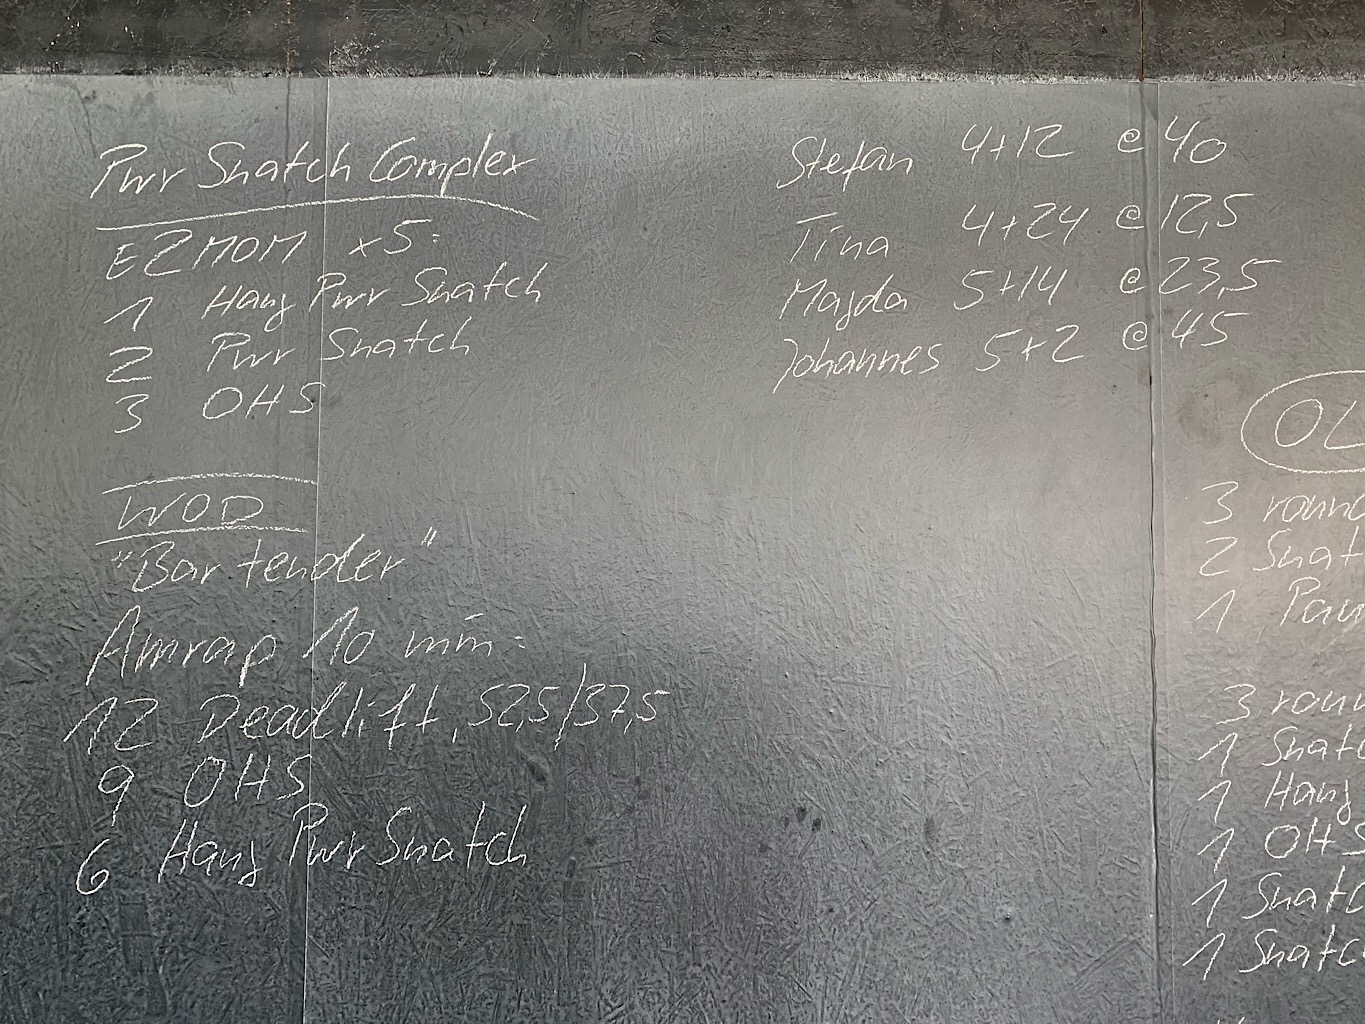 Pwr Snatch Complex
E2MOM x5:
1 Hang Pwr Snatch
2 Pwr Snatch
3 OHS
WOD
"Bartender"
Amrap 10 min:
12 Deadlift, 52,5/37,5
9 OHS
6 Hang Pwr Snatch
Stefan 4+12 @ 40
Tina 4+24 @ 12,5
Magda 5+14 @ 23,5
Johannes 5+2 @ 45
OL
3 roun
2 Snat
1 Pau
3 roun
1 Snatc
1 Hang
1 OHS
1 Snatc
1 Snatc